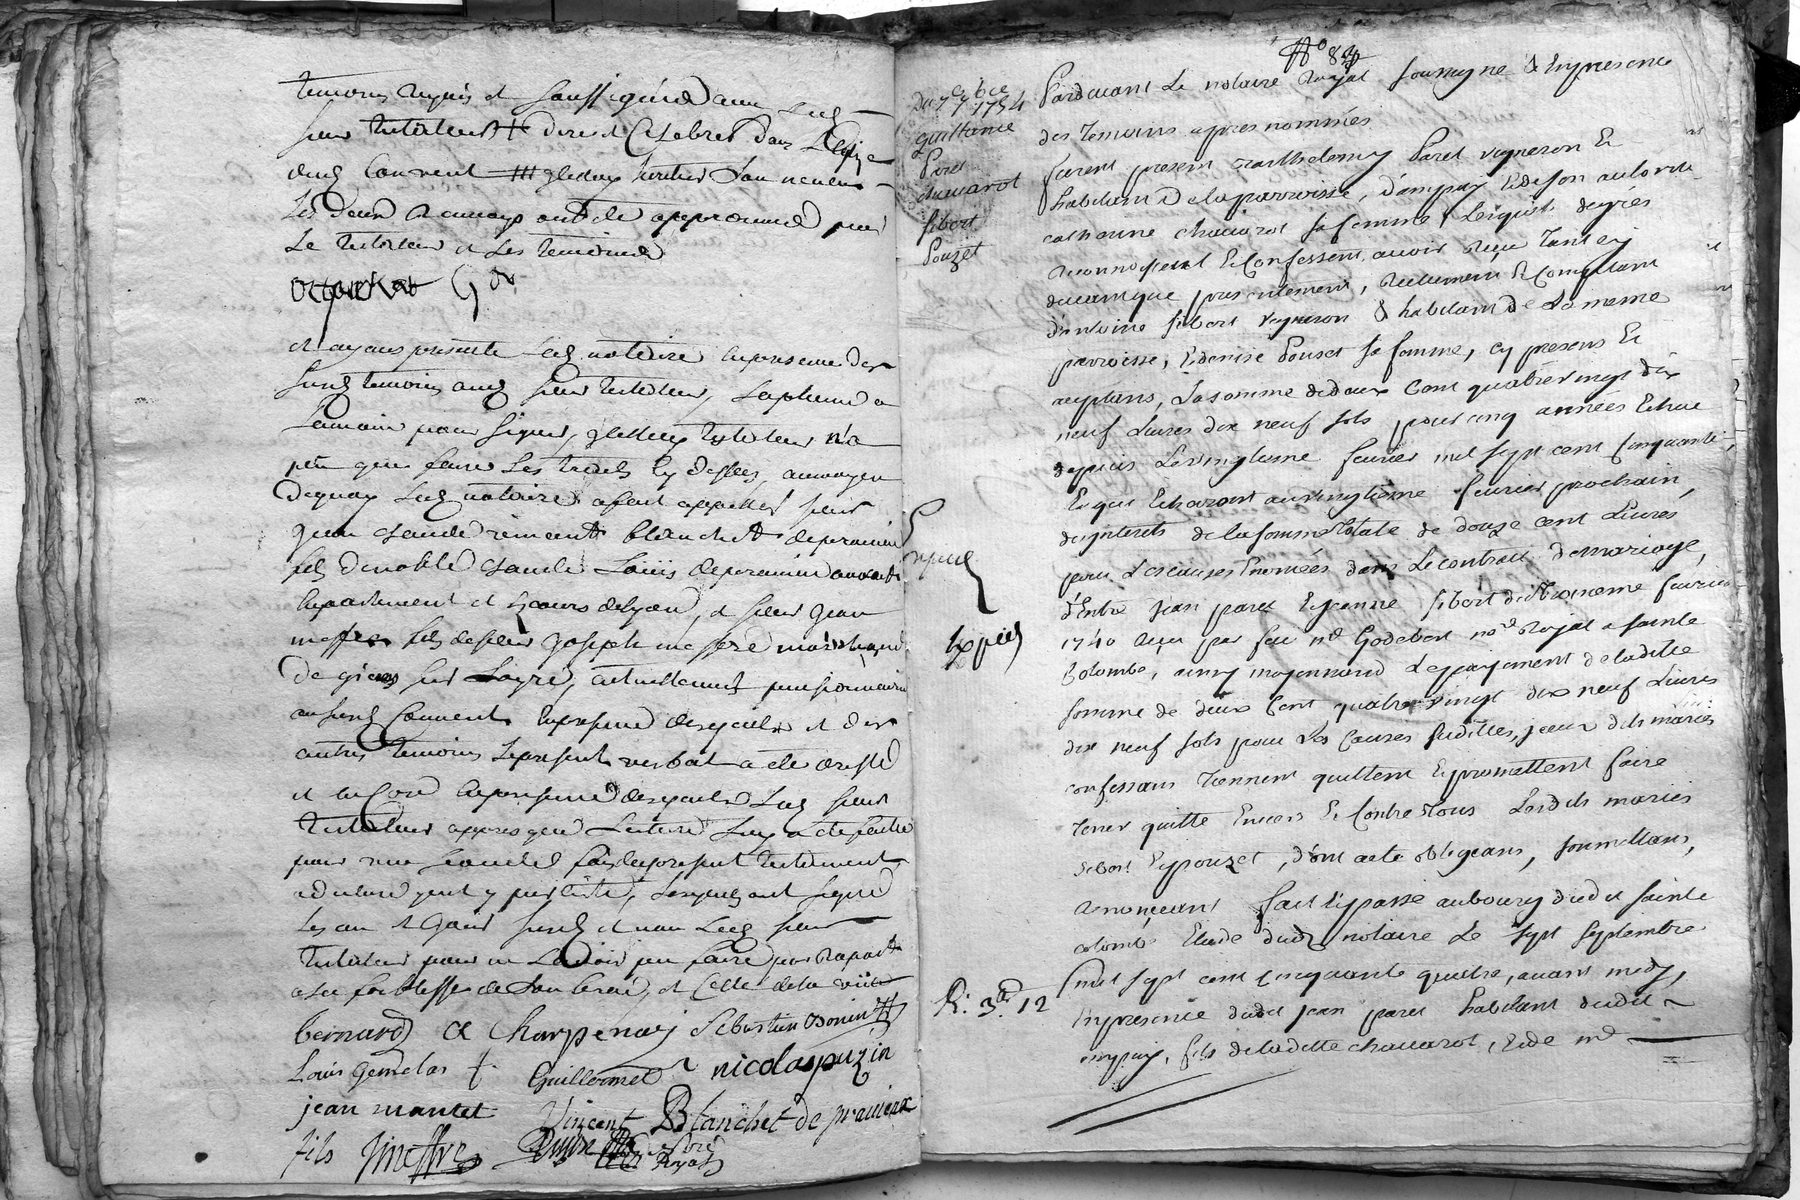 temoins requis et soussignés avec led
sieur testateur + dire et celebrer dans leglise
dud couvent +++ gledux heritier son neveu
les deux renvoys ont ete approuvés par
le testateur et les temoins
et ayant presenté led notaire en presence des
susd temoins aud sieur testateur, la plume a
la main pour signer, testateur n'a
peu que faire les traits cy dessus, au moyen
de quoy led notaire a fait appeller sieur
jean claude vincent blanchet de pravieux
fils de noble claude Louis de pravieux avocat
en parlement et cours de lyon, et sieur jean
meffre fils de sieur joseph meffre marchand
de givors sur , actuellement pensionnaire
au susd couvent en presence desquels et des
autres temoins le present verbal a eté dressé
et encore en presence desquels led sieur
testateur apres que lecture luy a eté faite
pour une seconde fois du present testament
a declaré y persister, lesquels ont signé
les an et jour susd et non led sieur
testateur pour ne l'avoir peu faire par raport
a la foiblesse de son bras, et celle de la vüe
bernard a Charpenay Sebastien bonin
Louis gemelas + Guillermet nicolas puzin
jean mantet Vincent Blanchet de pravieux
fils J meffre nore Royal
No 84
Du 7e 7bre 1754
quittance
Paret
chavarot
sibert
Pouzet
Pardevant Le notaire Royal soussigné & En presence
des Temoins apres nommés
furent presens Barthelemy Paret vigneron Et
habitant De la parroisse, d'ampuy Et de son autorité
catherine chavarot sa femme, Lesquels de grés
reconnoissent Et Confessent avoir reçu Tant cy
devant que presentement, reellement Et Comptant
d'antoine sibert vigneron & habitant de La meme
parroisse, Et denise Pouset sa femme, cy presens Et
acceptans, La somme de deux Cent quatre vingt dix
neuf Livres dix neuf sols pour cinq années Echue
depuis Le vingtieme fevrier mil sept cent Cinquante,
Et qui Echeront au vingtieme fevrier prochain,
des interets de la somme totale de douze cent Livres
pour Les causes Enoncées dans Le contrat de mariage,
d'Entre jean paret Et jeanne sibert du troisieme fevrier
1740 reçu par feu me Godebert nore Royal a sainte
Colombe, ainsy moyennant Le payement de laditte
somme de deux Cent quatre vingt dix neuf Livres
dix neuf sols pour Les Causes susdittes, iceux dits mariés
confessans Tiennent quittent Et promettent faire
Tenir quitte Envers Et Contre Tous Lesdits mariés
sibert Et pouzet, dont acte obligeans, soumettans,
Renonçeant fait Et passé au bourg dudit sainte
colombe Etude dudit notaire Le sept septembre
mil sept cent cinquante quatre, avant midy,
En presence dudit jean paret habitant dudit
ampuy, fils de ladette chavarot, Et de me
Expedié
R: 3lt. 12